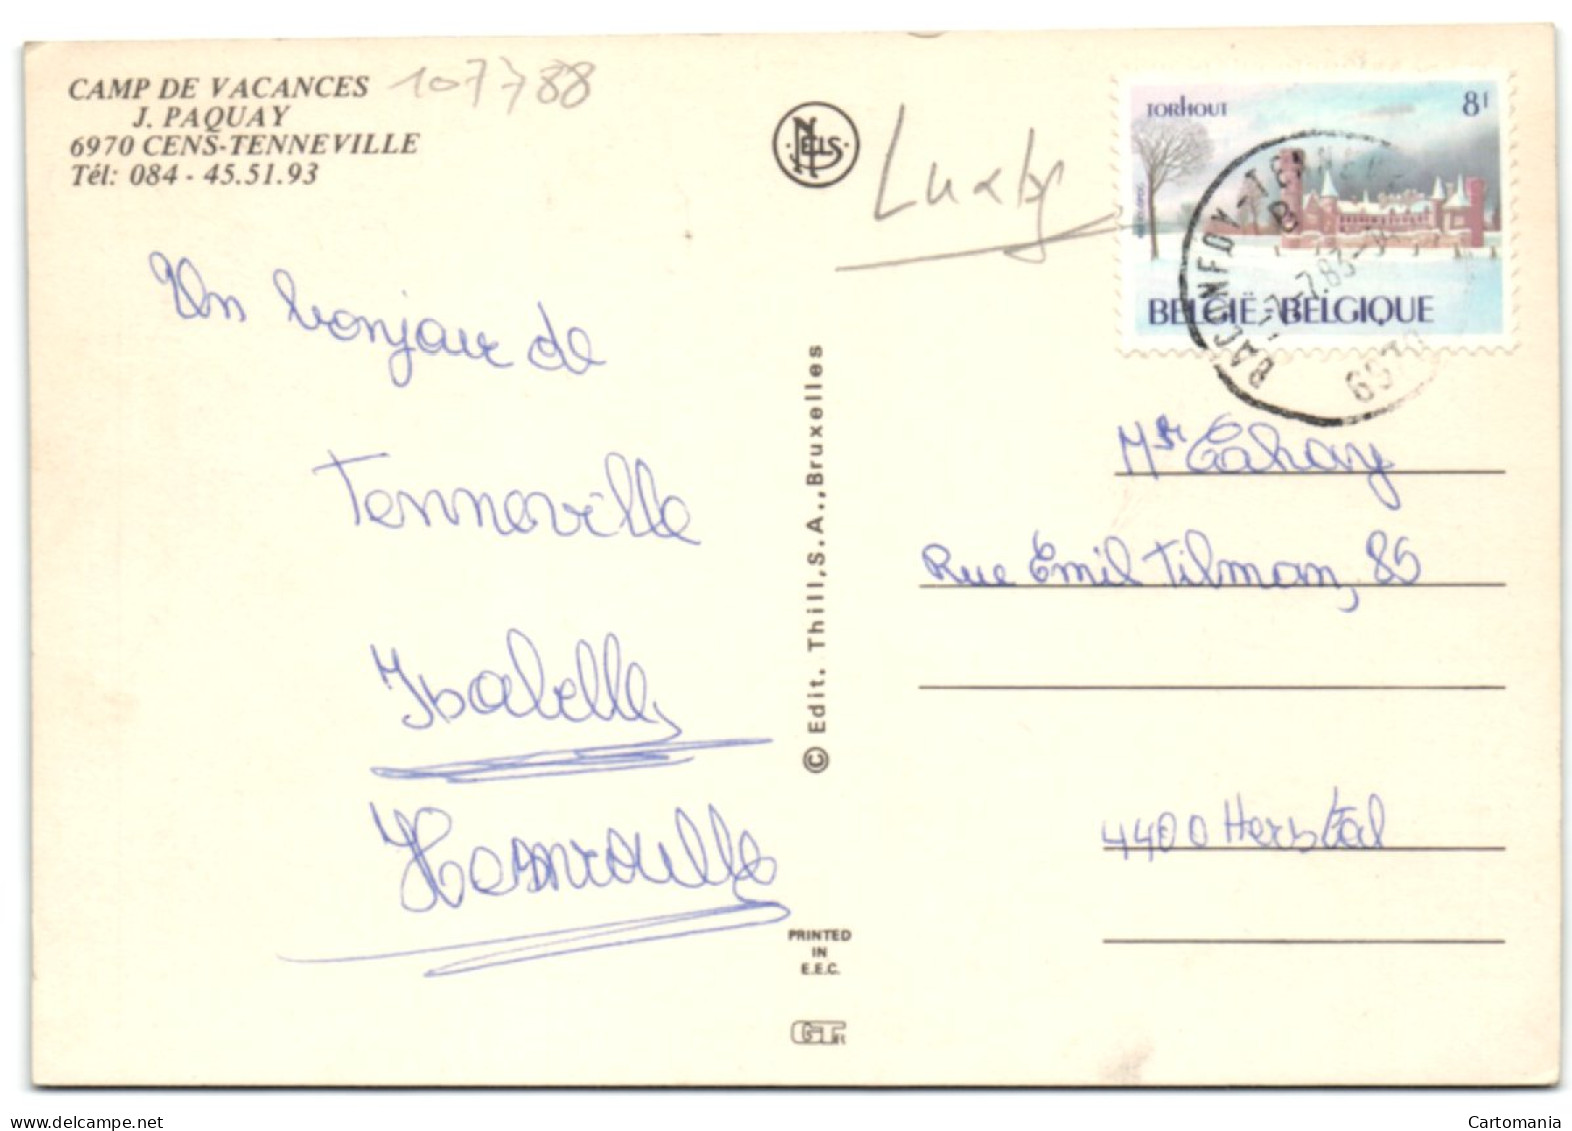 CAMP DE VACANCES
J. PAQUAY
6970 CENS-TENNEVILLE
Tél: 084 - 45.51.93
107788
NELS
TORHOUT
8f
BELGIË-BELGIQUE
BACONFOY-TENNEVILLE
B
-7-7.83-
6970
Un bonjour de
Tenneville
Isabelle
© Edit. Thill, S.A., Bruxelles
Mr Cahay
Rue Emil Tilman, 85
4400 Herstal
PRINTED
IN
E.E.C.
delcampe.net
Cartomania